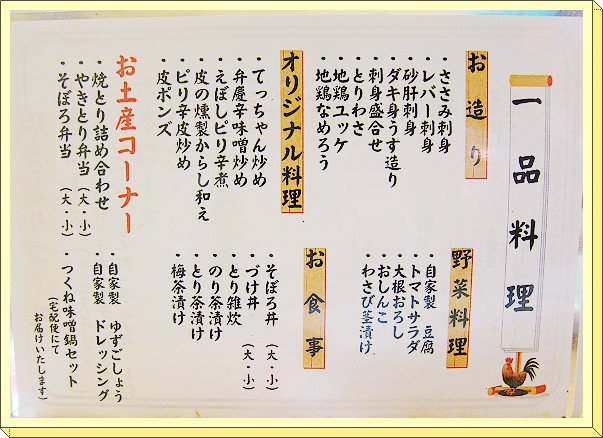 一品料理
お造り
・ささみ刺身
・レバー刺身
・砂肝刺身
・ダキ身うす造り
・刺身盛合せ
・とりわさ
・地鶏ユッケ
・地鶏なめろう
野菜料理
・自家製 豆腐
・トマトサラダ
・大根おろし
・おしんこ
・わさび茎漬け
オリジナル料理
・てっちゃん炒め
・弁慶辛味噌炒め
・えぼしピリ辛煮
・皮の燻製からし和え
・ピリ辛皮炒め
・皮ポンズ
お食事
・そぼろ丼（大・小）
・づけ丼（大・小）
・とり雑炊
・のり茶漬け
・とり茶漬け
・梅茶漬け
お土産コーナー
・焼とり詰め合わせ
・やきとり弁当（大・小）
・そぼろ弁当（大・小）
・自家製 ゆずごしょう
・自家製 ドレッシング
・つくね味噌鍋セット
（宅配便にて
お届けいたします）